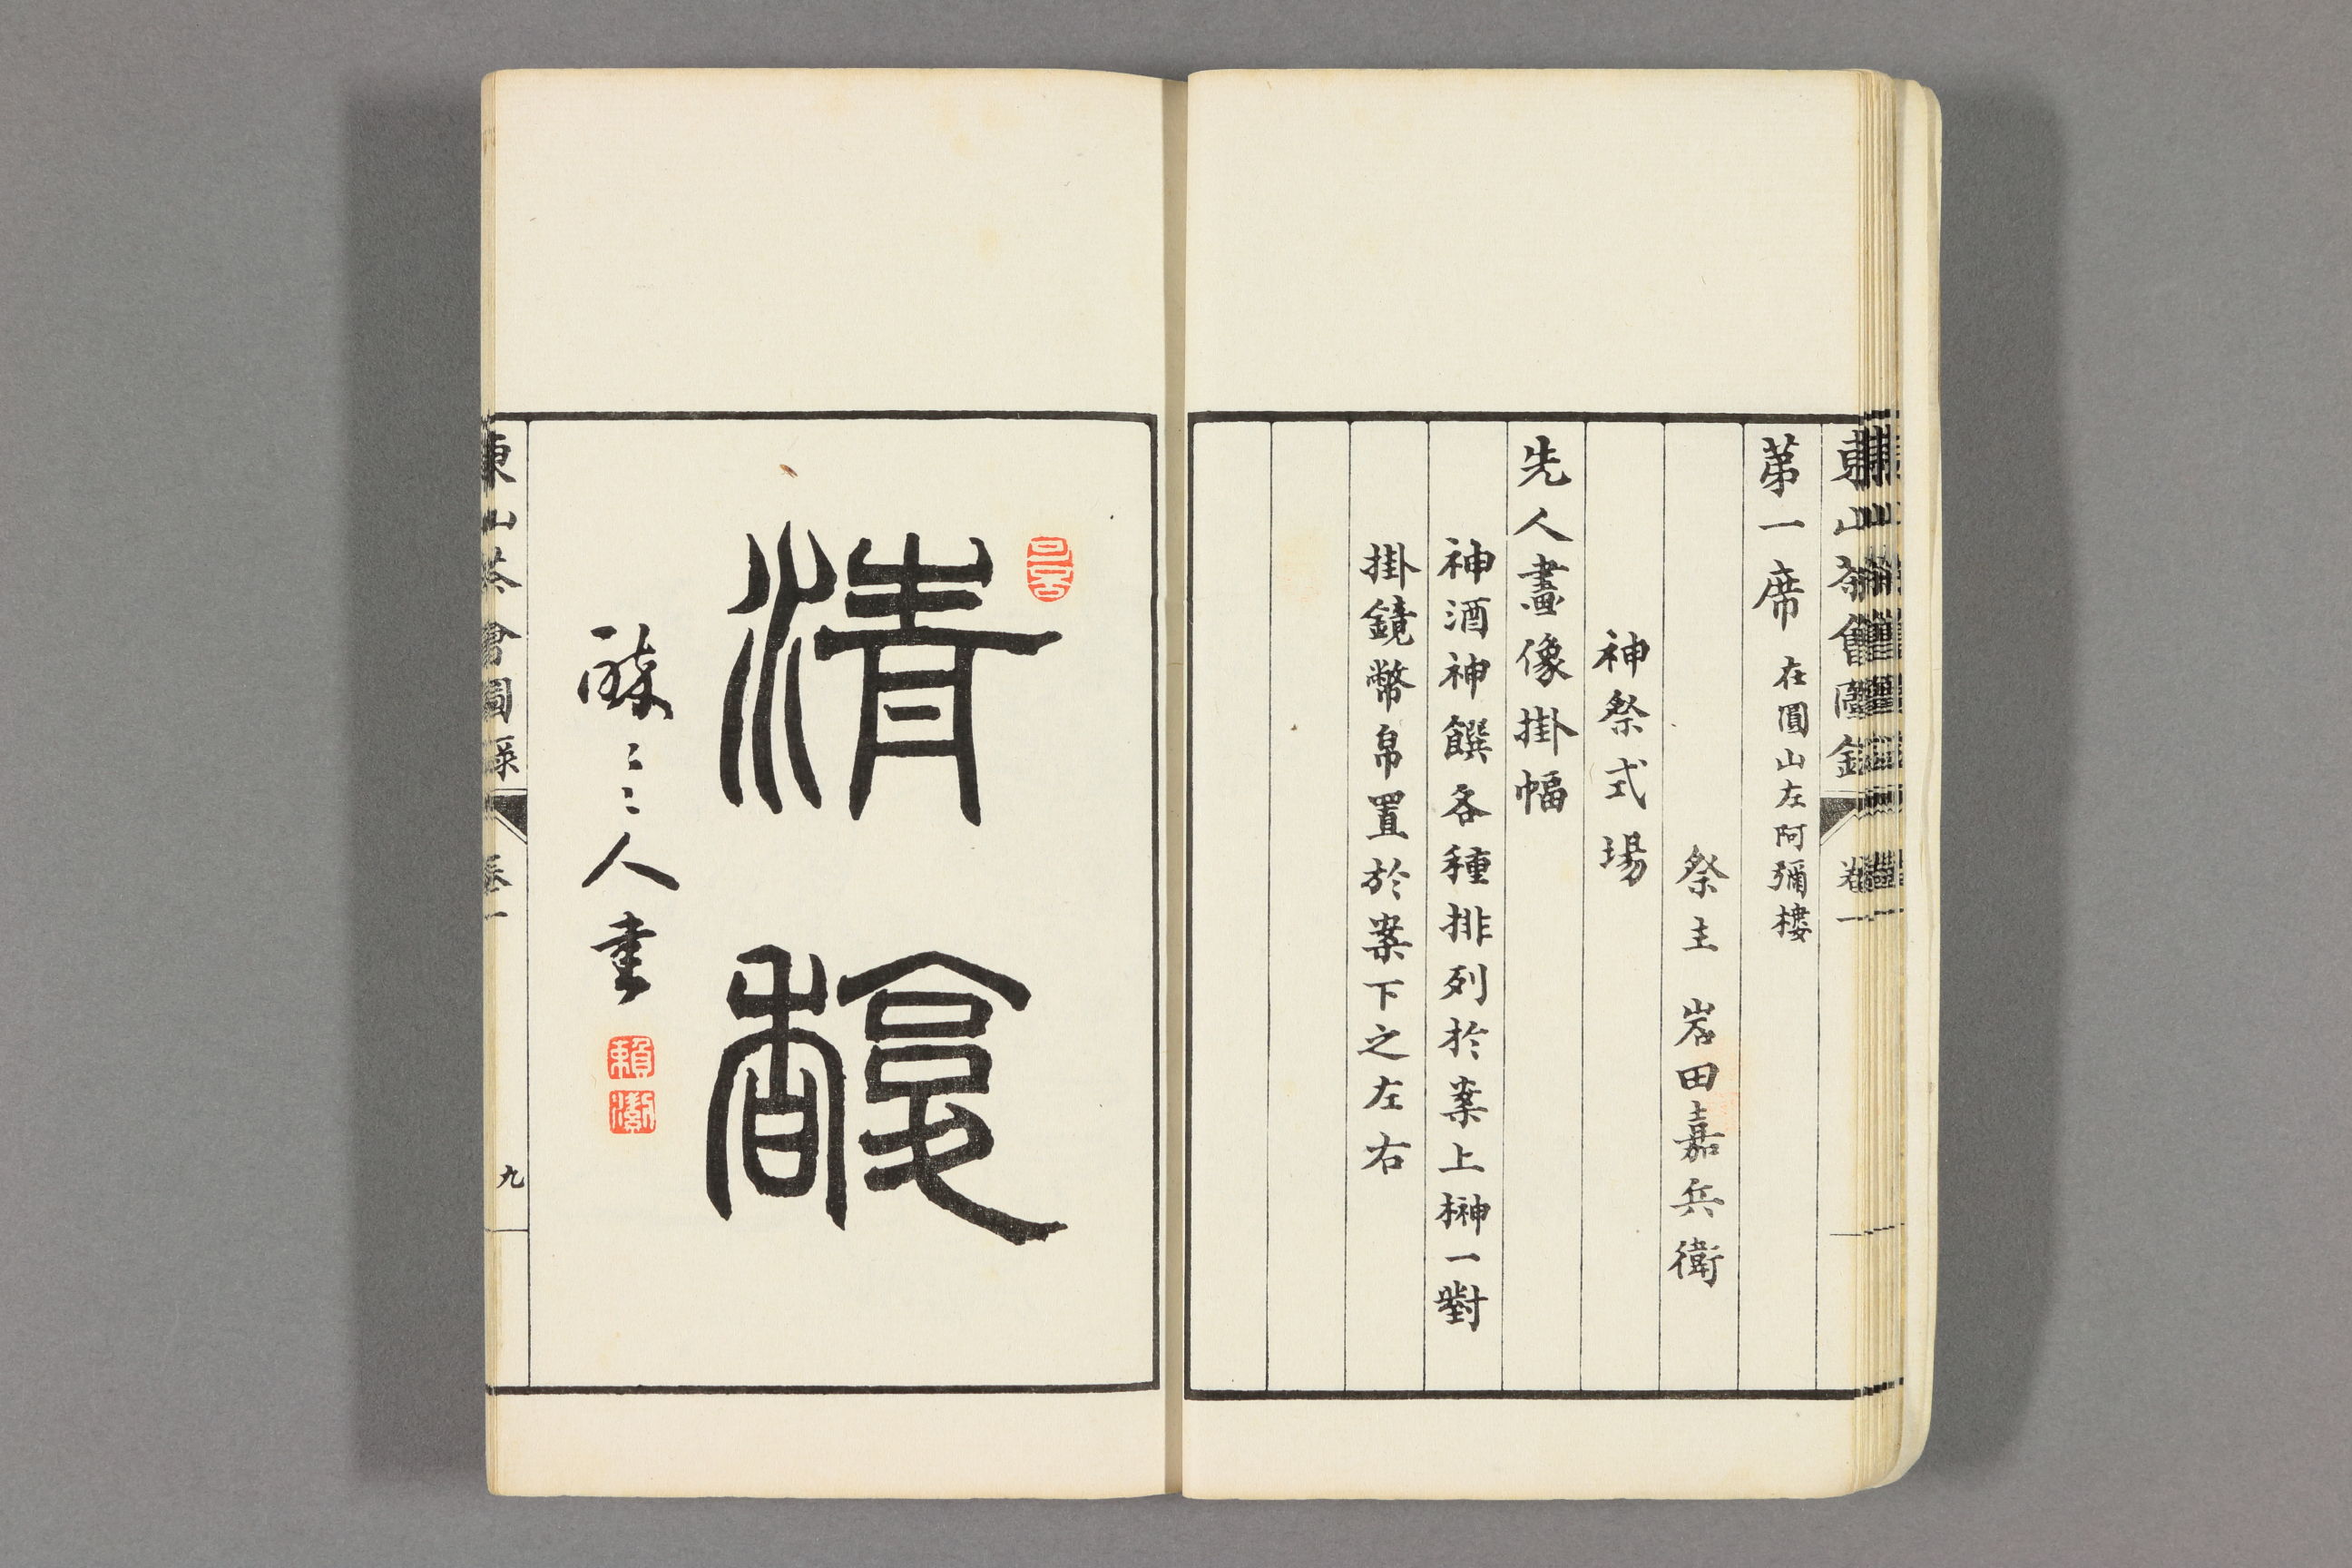 東山茶會圖録 卷一
第一席 在圓山左阿彌樓
祭主 岩田嘉兵衛
神祭式場
先人畫像掛幅
神酒神饌各種排列於案上榊一對
掛鏡幣帛置於案下之左右
清
馥
人書
東山茶會圖録 卷一 九